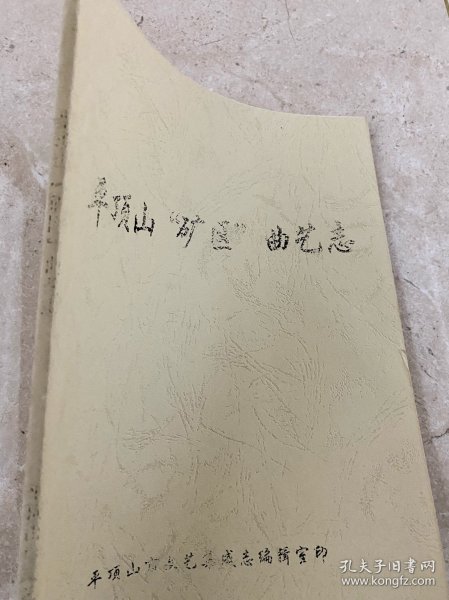 平顶山“矿区”曲艺志
平顶山市文艺集成志编辑室印
孔夫子旧书网
www.kongfz.com